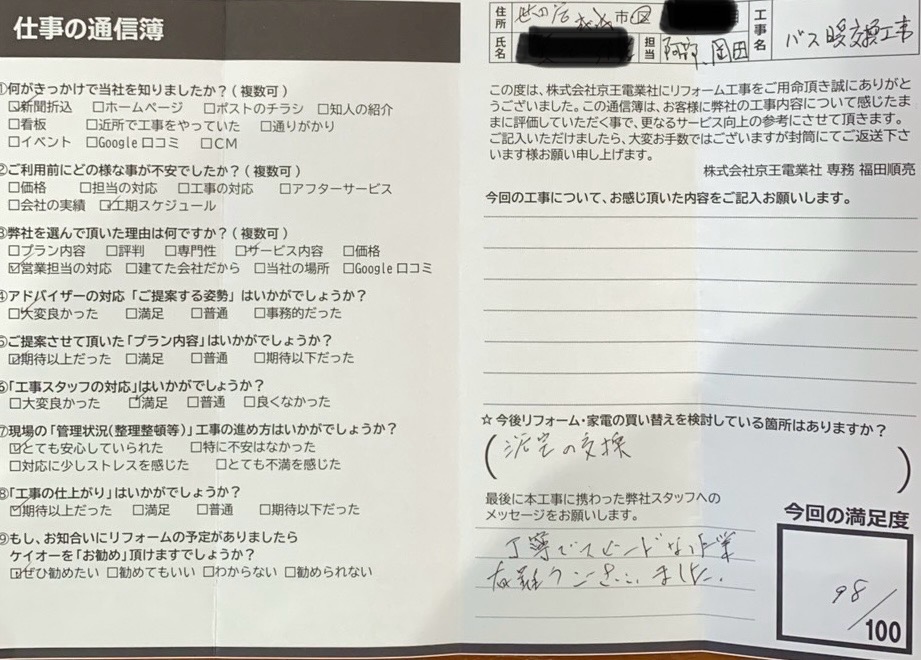 仕事の通信簿
①何がきっかけで当社を知りましたか？(複数可)
☑新聞折込 □ホームページ □ポストのチラシ □知人の紹介
□看板 □近所で工事をやっていた □通りがかり
□イベント □Google口コミ □CM
②ご利用前にどの様な事が不安でしたか？(複数可)
□価格 □担当の対応 □工事の対応 □アフターサービス
□会社の実績 ☑工期スケジュール
③弊社を選んで頂いた理由は何ですか？(複数可)
□プラン内容 □評判 □専門性 ☑サービス内容 □価格
☑営業担当の対応 □建てた会社だから □当社の場所 □Google口コミ
④アドバイザーの対応「ご提案する姿勢」はいかがでしょうか？
☑大変良かった □満足 □普通 □事務的だった
⑤ご提案させて頂いた「プラン内容」はいかがでしょうか？
☑期待以上だった □満足 □普通 □期待以下だった
⑥「工事スタッフの対応」はいかがでしょうか？
□大変良かった ☑満足 □普通 □良くなかった
⑦現場の「管理状況(整理整頓等)」工事の進め方はいかがでしょうか？
☑とても安心していられた □特に不安はなかった
□対応に少しストレスを感じた □とても不満を感じた
⑧「工事の仕上がり」はいかがでしょうか？
☑期待以上だった □満足 □普通 □期待以下だった
⑨もし、お知合いにリフォームの予定がありましたら
ケイオーを「お勧め」頂けますでしょうか？
☑ぜひ勧めたい □勧めてもいい □わからない □勧められない
住所 市区
氏名 担当 阿部、岡田
工事名 バス暖交換工事
この度は、株式会社京王電業社にリフォーム工事をご用命頂き誠にありがと
うございました。この通信簿は、お客様に弊社の工事内容について感じたま
まに評価していただく事で、更なるサービス向上の参考にさせて頂きます。
ご記入いただけましたら、大変お手数ではございますが封筒にてご返送下さ
います様お願い申し上げます。
株式会社京王電業社 専務 福田順亮
今回の工事について、お感じ頂いた内容をご記入お願いします。
☆今後リフォーム・家電の買い替えを検討している箇所はありますか？
( の交換 )
最後に本工事に携わった弊社スタッフへの
メッセージをお願いします。
丁寧でスピードな作業
有難うございました。
今回の満足度
98/100